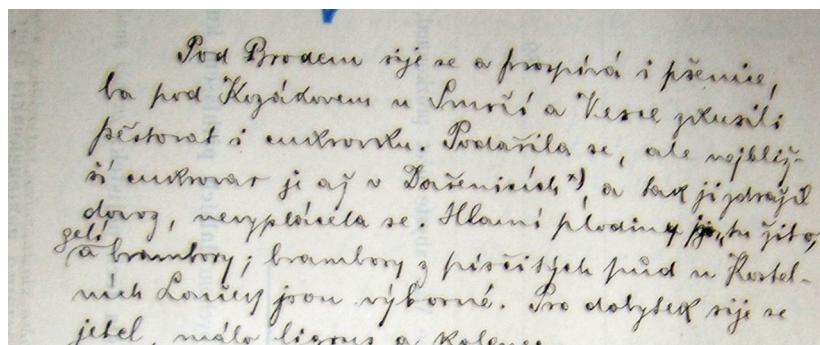 Pod Brodem sije se a prospívá i pšenice,
ba pod Kozákovem u Smrčí a Vesce zkusili
pěstovat i cukrovku. Podařila se, ale nejbliž-
ší cukrovar je až v Dašenicích x) a tak ji zdražil
dovoz, nevyplácela se. Hlavní plodiny jsou tu žito,
zelí
a brambory; brambory z písčitých půd u Kostel-
ních Loučky jsou výborné. Pro dobytek sije se
jetel, málo lignus a